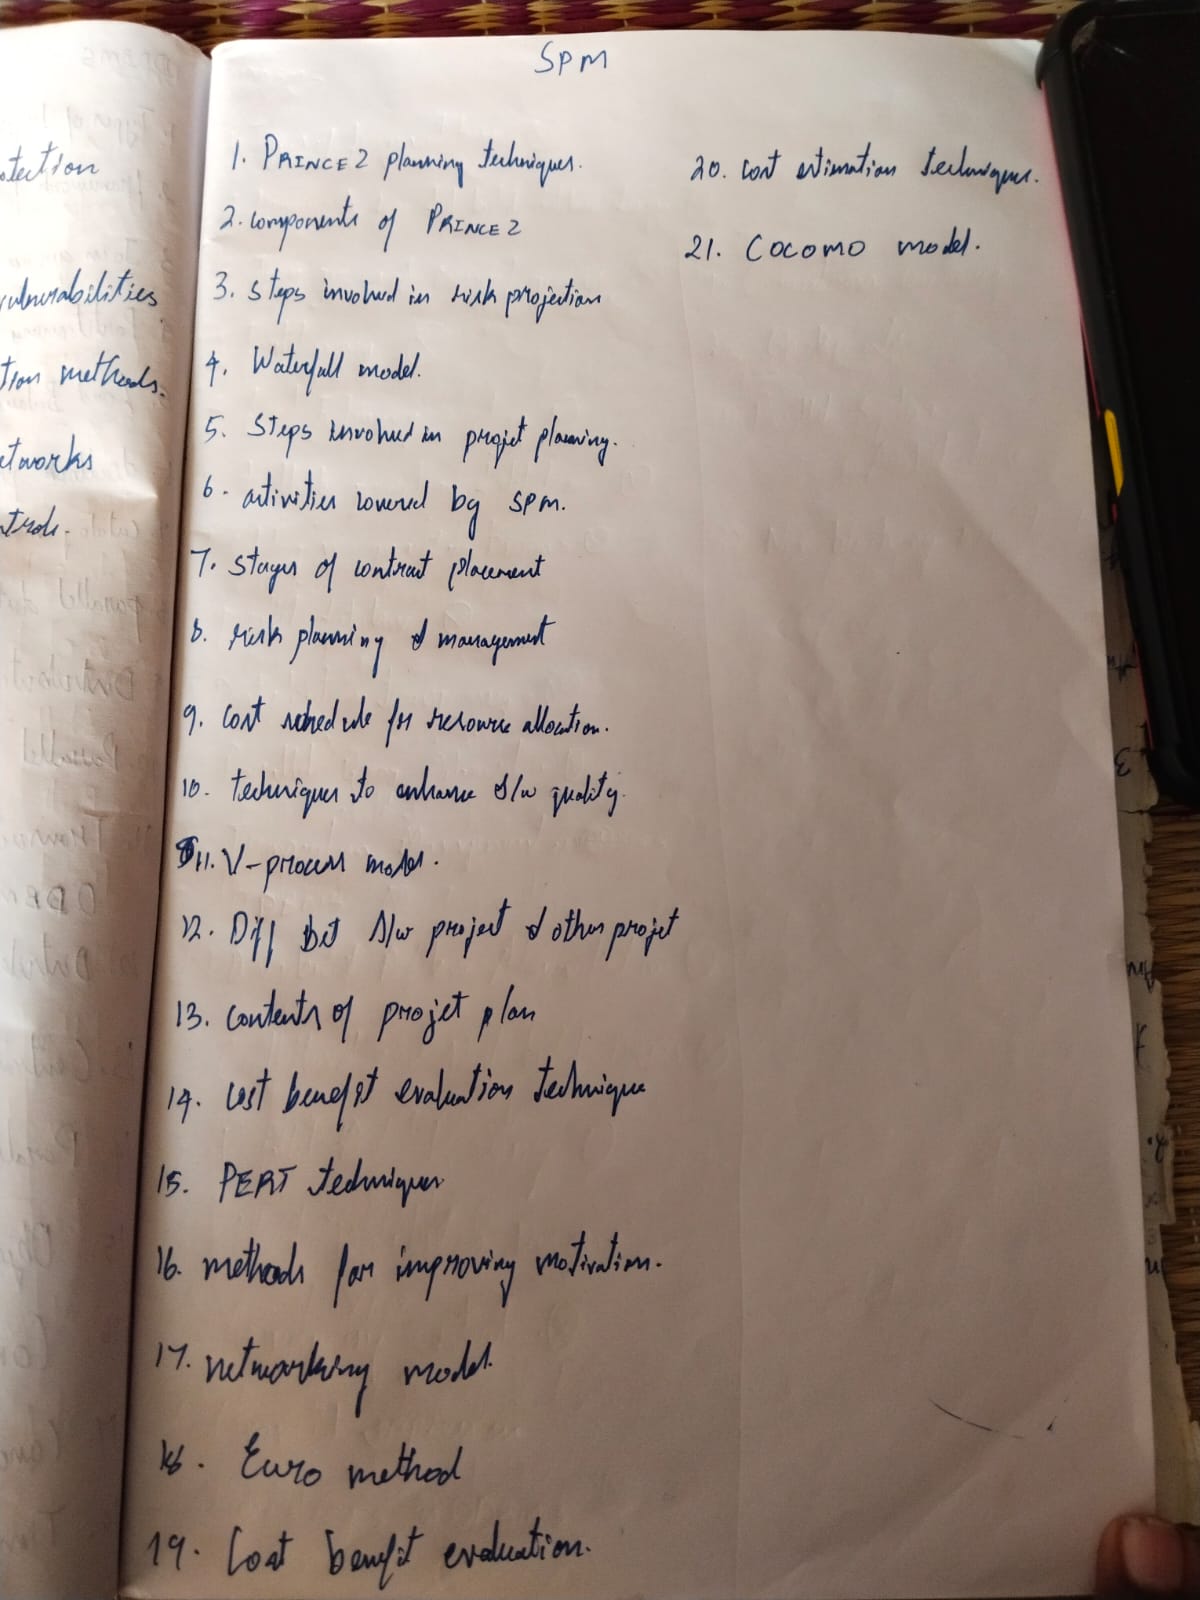 SPM
1. PRINCE 2 planning techniques.
2. components of PRINCE 2
3. Steps involved in risk projection
4. Waterfall model.
5. Steps involved in projet planning.
6. activities covered by SPM.
7. Stages of contract placement
8. risk planning & management
9. cost schedule for resource allocation.
10. techniques to enhance S/w quality.
11. V-process model.
12. Diff bet S/w project & other projet
13. contents of projet plan
14. cost benefit evaluation technique
15. PERT techniques
16. methods for improving motivation.
17. networking model.
18. Euro method
19. Cost benefit evaluation.
20. cost estimation techniques.
21. COCOMO model.
otection
vulnerabilities
tion methods.
etworks
ntrols.